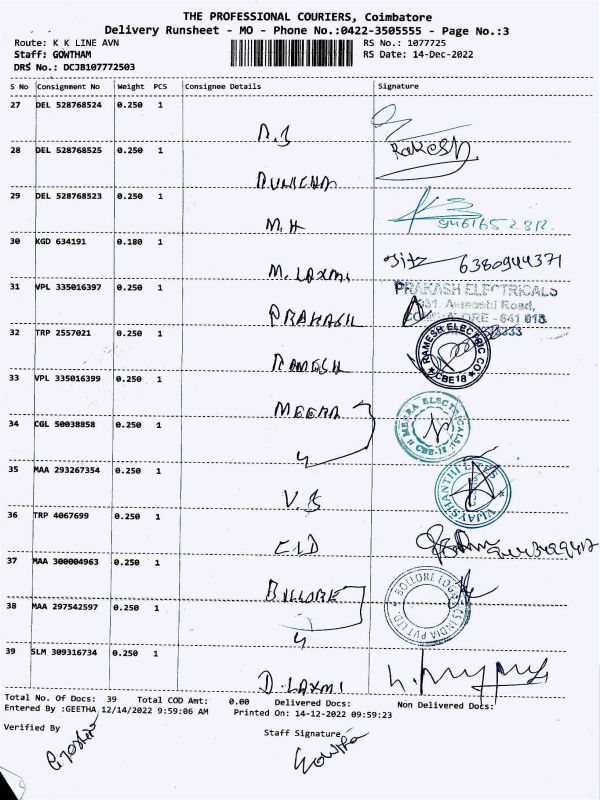 THE PROFESSIONAL COURIERS, Coimbatore
Delivery Runsheet - MO - Phone No.:0422-3505555 - Page No.:3
Route: K K LINE AVN RS No.: 1077725
Staff: GOWTHAM RS Date: 14-Dec-2022
DRS No.: DCJB107772503
S No Consignment No Weight PCS Consignee Details Signature
27 DEL 528768524 0.250 1
28 DEL 528768525 0.250 1 Rakesh
29 DEL 528768523 0.250 1 M.H
30 KGD 634191 0.180 1 M. LAXMI 6380944371
31 VPL 335016397 0.250 1 PRAKASH PRAKASH ELECTRICALS
Road,
- 641 018
32 TRP 2557021 0.250 1 RAMESH RAMESH ELECTRIC CO. CBE18
33 VPL 335016399 0.250 1 MEERA
34 CGL 50038858 0.250 1 MEERA ELECTRICALS CBE-18
35 MAA 293267354 0.250 1 V.S VIJAYSHANTHI
36 TRP 4067699 0.250 1
37 MAA 300004963 0.250 1
38 MAA 297542597 0.250 1 INDIA PVT LTD.
39 SLM 309316734 0.250 1 D. LAXMI
Total No. Of Docs: 39 Total COD Amt: 0.00 Delivered Docs: Non Delivered Docs:
Entered By :GEETHA,12/14/2022 9:59:06 AM Printed On: 14-12-2022 09:59:23
Verified By Staff Signature
Gowtha